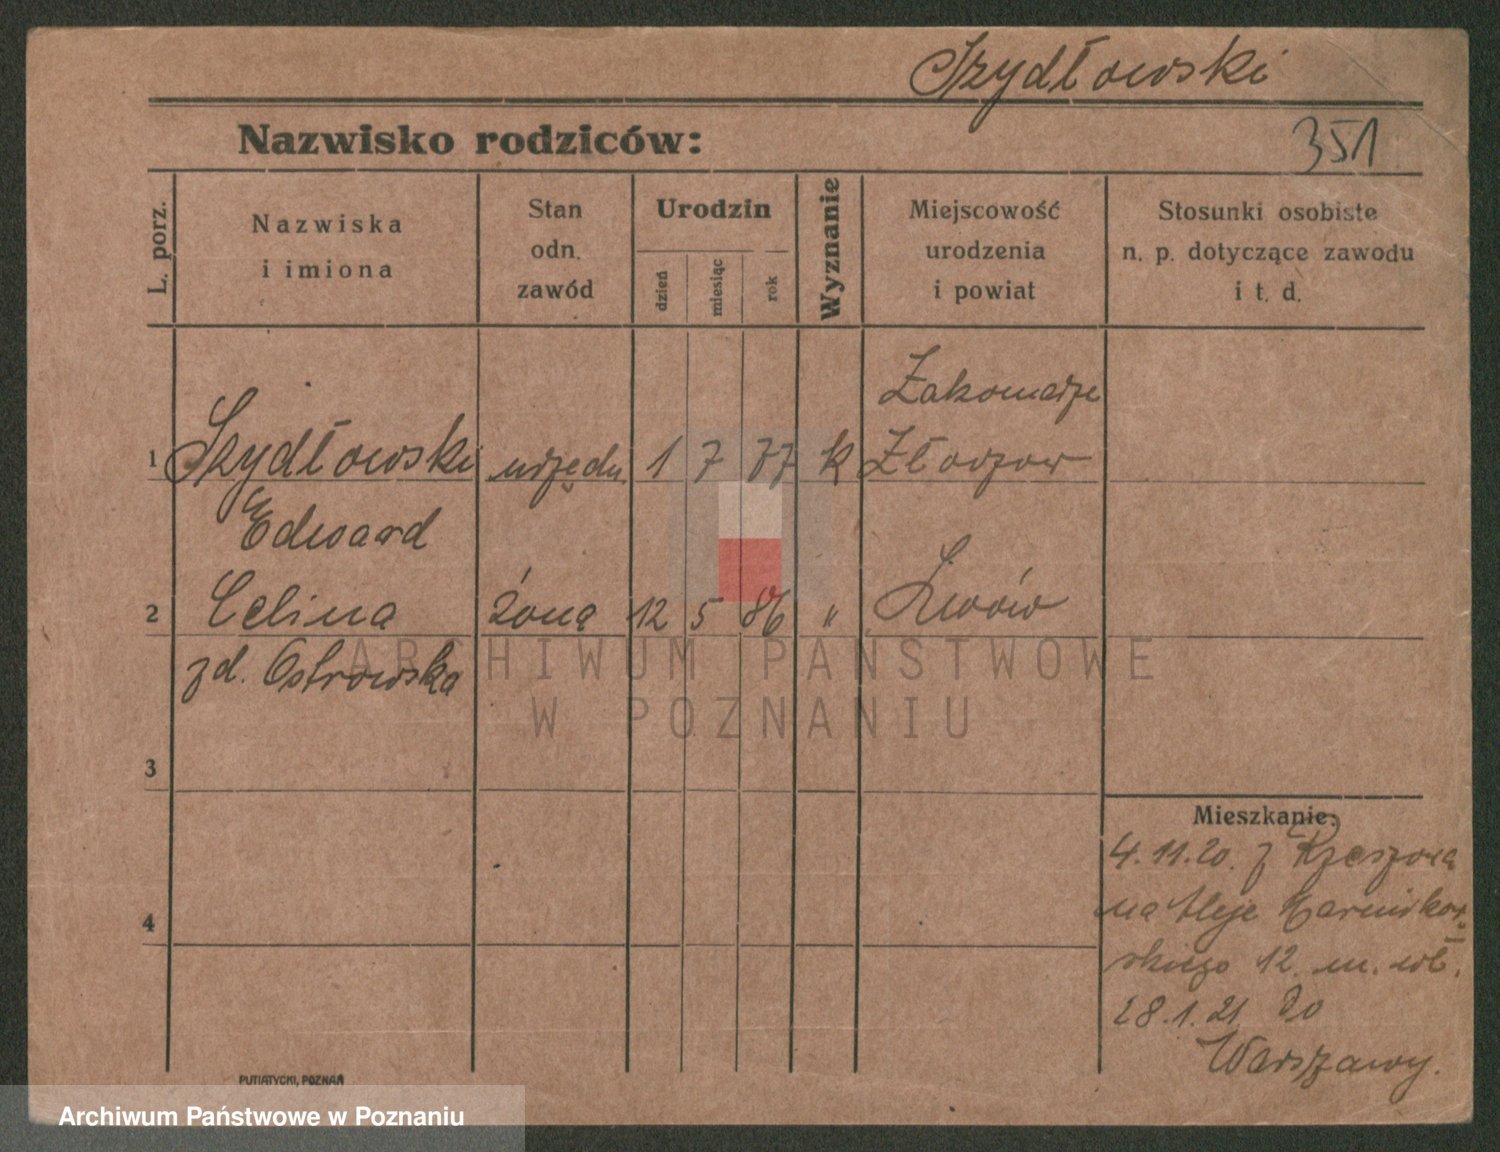 Szydłowski
Nazwisko rodziców:
351
L. porz.
Nazwiska
i imiona
Stan
odn.
zawód
Urodzin
dzień
miesiąc
rok
Wyznanie
Miejscowość
urodzenia
i powiat
Stosunki osobiste
n. p. dotyczące zawodu
i t. d.
Zakomarze
1 Szydłowski urzędn. 1 7 77 k Złoczow
Edward
2 Celina żona 12 5 86 " Lwów
zd. Ostrowska
ARCHIWUM PAŃSTWOWE
W POZNANIU
3
4
Mieszkanie:
4.11.20. z Rzeszowa
na Aleje Marcinkow-
skiego 12. m.
28.1.21 do
Warszawy.
PUTIATYCKI, POZNAŃ
Archiwum Państwowe w Poznaniu